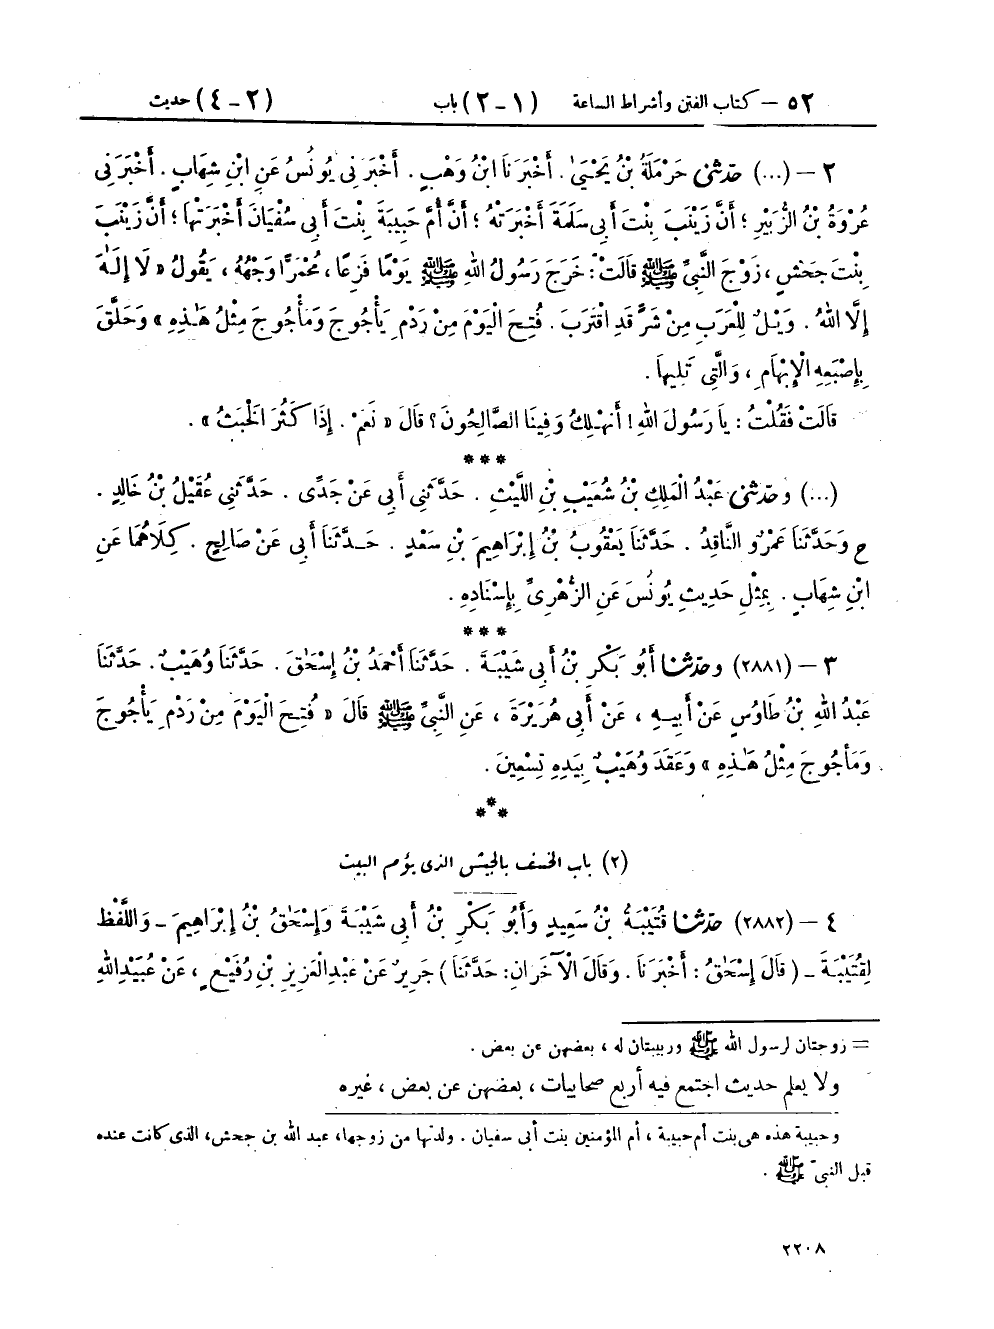 ٥٢ – كتاب الفتن وأشراط الساعة (١ – ٢) باب (٢ – ٤) حديث
٢ – (...) حَدَّثَنِي حَرْمَلَةُ بْنُ يَحْيَىٰ . أَخْبَرَنَا ابْنُ وَهْبٍ . أَخْبَرَنِي يُونُسُ عَنِ ابْنِ شِهَابٍ . أَخْبَرَنِي
عُرْوَةُ بْنُ الزُّبَيْرِ ؛ أَنَّ زَيْنَبَ بِنْتَ أَبِي سَلَمَةَ أَخْبَرَتْهُ ؛ أَنَّ أُمَّ حَبِيبَةَ بِنْتَ أَبِي سُفْيَانَ أَخْبَرَتْهَا ؛ أَنَّ زَيْنَبَ
بِنْتَ جَحْشٍ ، زَوْجَ النَّبِيِّ ﷺ قَالَتْ : خَرَجَ رَسُولُ اللهِ ﷺ يَوْمًا فَزِعًا ، مُحْمَرًّا وَجْهُهُ ، يَقُولُ « لَا إِلَٰهَ
إِلَّا اللهُ . وَيْلٌ لِلْعَرَبِ مِنْ شَرٍّ قَدِ اقْتَرَبَ . فُتِحَ الْيَوْمَ مِنْ رَدْمِ يَأْجُوجَ وَمَأْجُوجَ مِثْلُ هَٰذِهِ » وَحَلَّقَ
بِإِصْبَعِهِ الْإِبْهَامِ ، وَالَّتِي تَلِيهَا .
قَالَتْ فَقُلْتُ : يَا رَسُولَ اللهِ ! أَنَهْلِكُ وَفِينَا الصَّالِحُونَ ؟ قَالَ « نَعَمْ . إِذَا كَثُرَ الْخَبَثُ » .
***
(...) وحَدَّثَنِي عَبْدُ الْمَلِكِ بْنُ شُعَيْبِ بْنِ اللَّيْثِ . حَدَّثَنِي أَبِي عَنْ جَدِّي . حَدَّثَنِي عُقَيْلُ بْنُ خَالِدٍ .
ح وَحَدَّثَنَا عَمْرٌو النَّاقِدُ . حَدَّثَنَا يَعْقُوبُ بْنُ إِبْرَاهِيمَ بْنِ سَعْدٍ . حَدَّثَنَا أَبِي عَنْ صَالِحٍ . كِلَاهُمَا عَنِ
ابْنِ شِهَابٍ . بِمِثْلِ حَدِيثِ يُونُسَ عَنِ الزُّهْرِيِّ بِإِسْنَادِهِ .
***
٣ – (٢٨٨١) وحَدَّثَنَا أَبُو بَكْرِ بْنُ أَبِي شَيْبَةَ . حَدَّثَنَا أَحْمَدُ بْنُ إِسْحَٰقَ . حَدَّثَنَا وُهَيْبٌ . حَدَّثَنَا
عَبْدُ اللهِ بْنُ طَاوُسٍ عَنْ أَبِيهِ ، عَنْ أَبِي هُرَيْرَةَ ، عَنِ النَّبِيِّ ﷺ قَالَ « فُتِحَ الْيَوْمَ مِنْ رَدْمِ يَأْجُوجَ
وَمَأْجُوجَ مِثْلُ هَٰذِهِ » وَعَقَدَ وُهَيْبٌ بِيَدِهِ تِسْعِينَ .
***
(٢) باب الخسف بالجيش الذى يؤم البيت
٤ – (٢٨٨٢) حَدَّثَنَا قُتَيْبَةُ بْنُ سَعِيدٍ وَأَبُو بَكْرِ بْنُ أَبِي شَيْبَةَ وَإِسْحَٰقُ بْنُ إِبْرَاهِيمَ – وَاللَّفْظُ
لِقُتَيْبَةَ – ( قَالَ إِسْحَٰقُ : أَخْبَرَنَا . وَقَالَ الْآخَرَانِ : حَدَّثَنَا ) جَرِيرٌ عَنْ عَبْدِ الْعَزِيزِ بْنِ رُفَيْعٍ ، عَنْ عُبَيْدِ اللهِ
= زوجتان لرسول الله ﷺ وربيبتان له ، بعضهن عن بعض .
ولا يعلم حديث اجتمع فيه أربع صحابيات ، بعضهن عن بعض ، غيره
وحبيبة هذه هى بنت أم حبيبة ، أم المؤمنين بنت أبى سفيان . ولدتها من زوجها، عبد الله بن جحش، الذى كانت عنده
قبل النبىّ ﷺ .
٢٢٠٨